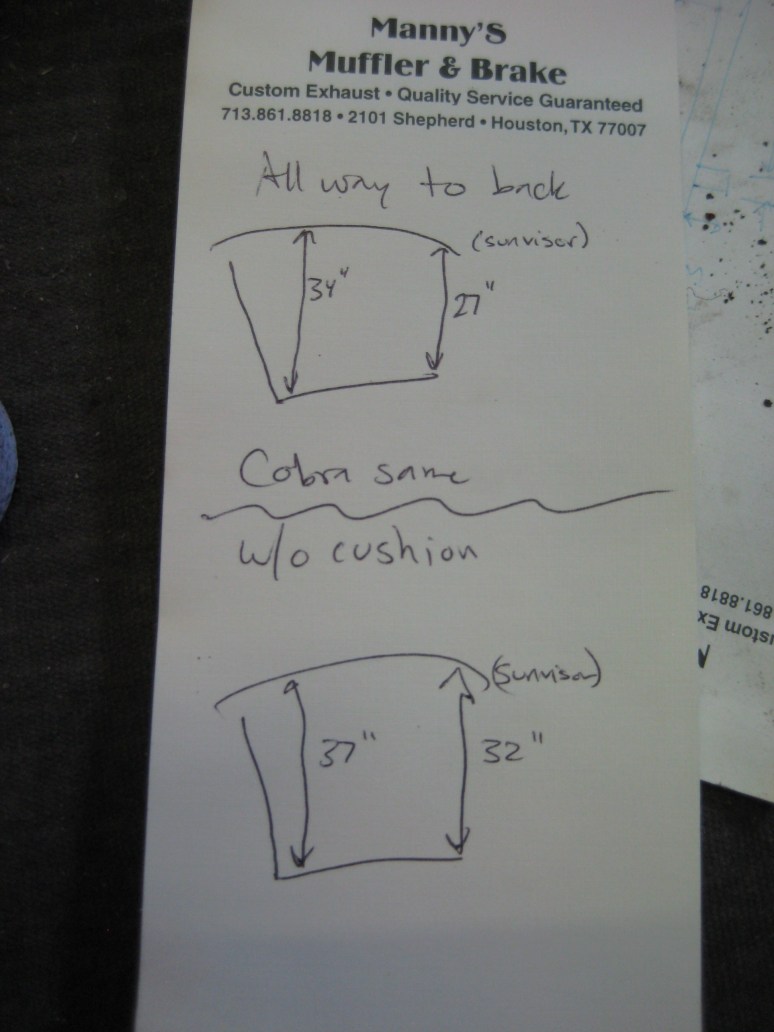 Manny'S
Muffler & Brake
Custom Exhaust • Quality Service Guaranteed
713.861.8818 • 2101 Shepherd • Houston, TX 77007
All way to back
(sunvisor)
34"
27"
Cobra same
w/o cushion
(sunvisor)
37"
32"
861.8818
stom Ex